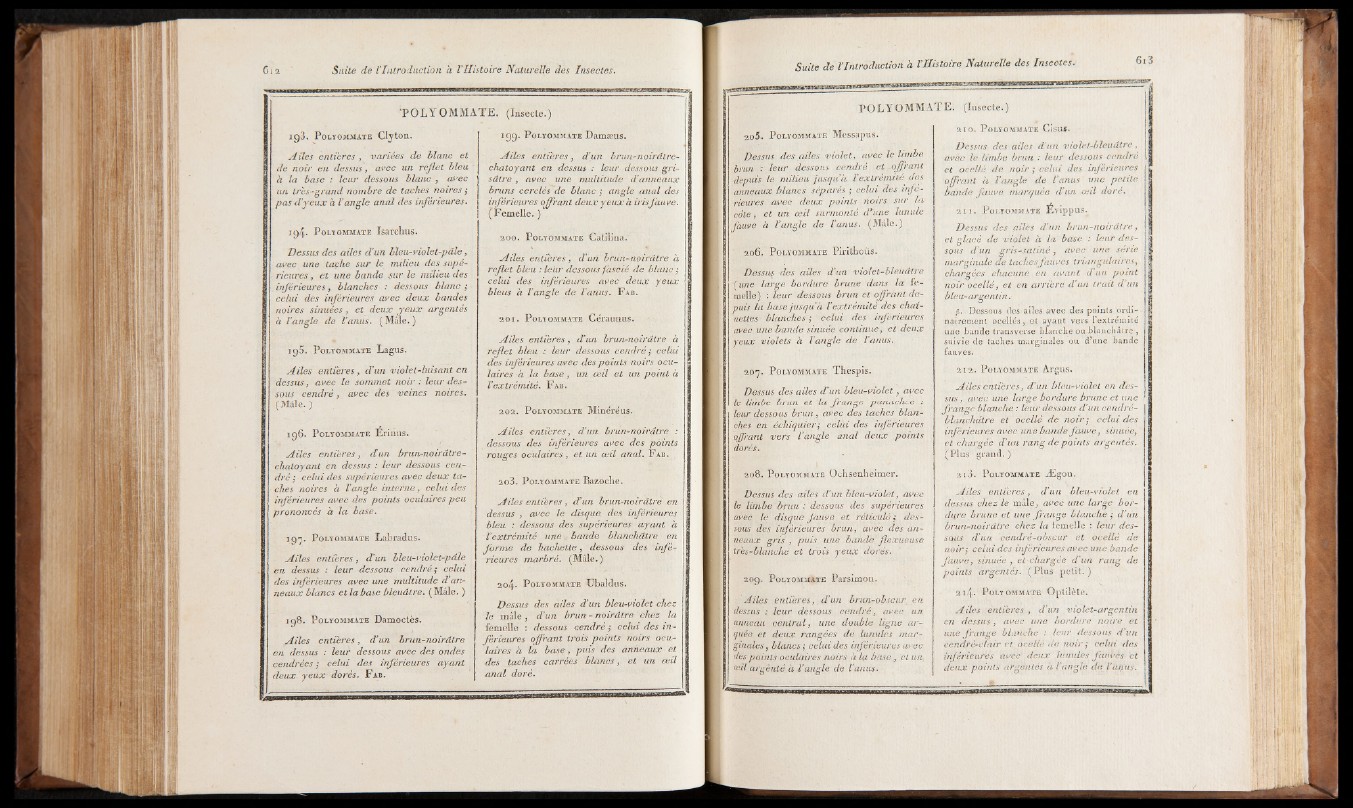 612 Suite de l'Introduction à l'Histoire Naturelle des Insectes.
POLYOMMATE. (Insecte.)
193. Polyommate Clyton.
Ailes entières, variées de blanc et
de noir en dessus, avec un reflet bleu
à la base : leur dessous blanc, avec
un très-grand nombre de taches noires ;
pas d'yeux à l'angle anal des inférieures.
194. Polyommate Isarchus.
Dessus des ailes d'un bleu-violet-pâle,
avec une tache sur le milieu des supé-
rieures, et une bande sur le milieu des
inférieures, blanches : dessous blanc ;
celui des inférieures avec deux bandes
noires sinuées, et deux yeux argentés
à l'angle de l'anus. (Mâle.)
195. Polyommate Lagus.
Ailes entières, d'un violet-luisant en
dessus, avec le sommet noir : leur des-
sous cendré, avec des veines noires.
(Mâle.)
196. Polyommate Érinus.
Ailes entières, d'un brun-noirâtre-
chatoyant en dessus : leur dessous cen-
dré ; celui des supérieures avec deux ta-
ches noires à l'angle interne, celui des
inférieures avec des points oculaires peu
prononcés à la base.
197. Polyommate Labradus.
Ailes entières, d'un bleu-violet-pâle
en dessus : leur dessous cendré ; celui
des inférieures avec une multitude d'an-
neaux blancs et la base bleuâtre. (Mâle.)
198. Polyommate Damoetès.
Ailes entières, d'un brun-noirâtre
en dessus : leur dessous avec des ondes
cendrées ; celui des inférieures ayant
deux yeux dorés. Fab.
199. Polyommate Damæus.
Ailes entières, d'un brun-noirâtre-
chatoyant en dessus : leur dessous gri-
sâtre, avec une multitude d'anneaux
bruns cerclés de blanc ; angle anal des
inférieures offrant deux yeux à iris fauve.
(Femelle.)
200. Polyommate Catilina.
Ailes entières, d'un brun-noirâtre à
reflet bleu : leur dessous fascié de blanc ;
celui des inférieures avec deux yeux
bleus à l'angle de l'anus. Fab.
201. Polyommate Céraunus.
Ailes entières, d'un brun-noirâtre à
reflet bleu : leur dessous cendré ; celui
des inférieures avec des points noirs ocu-
laires à la base, un œil et un point à
l'extrémité. Fab.
202. Polyommate Minéréus.
Ailes entières, d'un brun-noirâtre :
dessous des inférieures avec des points
rouges oculaires, et un œil anal. Fab.
203. Polyommate Bazoche.
Ailes entières, d'un brun-noirâtre en
dessus, avec le disque des inférieures
bleu : dessous des supérieures ayant à
l'extrémité une bande blanchâtre en
forme de hachette, dessous des infé-
rieures marbré. (Mâle.)
204. Polyommate Ubaldus.
Dessus des ailes d'un bleu-violet chez
le mâle, d'un brun-noirâtre chez la
femelle : dessous cendré ; celui des in-
férieures offrant trois points noirs ocu-
laires à la base, puis des anneaux et
des taches carrées blancs, et un œil
anal doré.
Suite de l'Introduction à l'Histoire Naturelle des Insectes. 613
POLYOMMATE. (Insecte.)
205. Polyommate Messapus.
Dessus des ailes violet, avec le limbe
brun : leur dessous cendré et offrant
depuis le milieu jusqu'à l'extrémité des
anneaux blancs séparés ; celui des infé-
rieures avec deux points noirs sur la
côte, et un œil surmonté d'une lunule
fauve à l'angle de l'anus. (Mâle.)
206. Polyommate Pirithoüs.
Dessus des ailes d'un violet-bleuâtre
(une large bordure brune dans la fe-
melle) : leur dessous brun et offrant de-
puis la base jusqu'à l'extrémité des chaî-
nettes blanches ; celui des inférieures
avec une bande sinuée continue, et deux
yeux violets à l'angle de l'anus.
207. Polyommate Thespis.
Dessus des ailes d'un bleu-violet, avec
le limbe brun et la frange panachée :
leur dessous brun, avec des taches blan-
ches en échiquier ; celui des inférieures
offrant vers l'angle anal deux points
dorés.
208. Polyommate Ochsenheimer.
Dessus des ailes d'un bleu-violet, avec
le limbe brun : dessous des supérieures
avec le disque fauve et réticulé ; des-
sous des inférieures brun, avec des an-
neaux gris, puis une bande flexueuse
très-blanche et trois yeux dorés.
209. Polyommate Parsimon.
Ailes entières, d'un brun-obscur en
dessus : leur dessous cendré, avec un
anneau central, une double ligne ar-
quée et deux rangées de lunules mar-
ginales, blancs ; celui des inférieures avec
des points oculaires noirs à la base, et un
œil argenté à l'angle de l'anus.
210. Polyommate Cisus.
Dessus des ailes d'un violet-bleuâtre,
avec le limbe brun : leur dessous cendré
et ocellé de noir ; celui des inférieures
offrant à l'angle de l'anus une petite
bande fauve marquée d'un œil doré.
211. Polyommate Évippus.
Dessus des ailes d'un brun-noirâtre,
et glacé de violet à la base : leur des-
sous d'un gris-satiné, avec une série
marginale de taches fauves triangulaires,
chargées chacune en avant d'un point
noir ocellé, et en arrière d'un trait d'un
bleu-argentin.
Dessous des ailes avec des points ordi-
nairement ocellés, et ayant vers l'extrémité
une bande transverse blanche ou blanchâtre,
suivie de taches marginales ou d'une bande
fauves.
212. Polyommate Argus.
Ailes entières, d'un bleu-violet en des-
sus, avec une large bordure brune et une
frange blanche : leur dessous d'un cendré-
blanchâtre et ocellé de noir ; celui des
inférieures avec une bande fauve, sinuée,
et chargée d'un rang de points argentés.
(Plus grand.)
213. Polyommate Ægon.
Ailes entières, d'un bleu-violet en
dessus chez le mâle, avec une large bor-
dure brune et une frange blanche ; d'un
brun-noirâtre chez la femelle : leur des-
sous d'un cendré-obscur et ocellé de
noir ; celui des inférieures avec une bande
fauve, sinuée, et chargée d'un rang de
points argentés. (Plus petit.)
214. Polyommate Optilète.
Ailes entières, d'un violet-argentin
en dessus, avec une bordure noire et
une frange blanche : leur dessous d'un
cendré-clair et ocellé de noir ; celui des
inférieures avec deux lunules fauves et
deux points argentés à l'angle de l'anus.